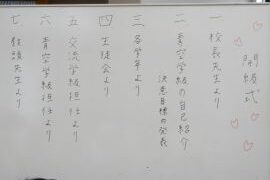 開級式
一 校長先生より
二 青空学級の自己紹介
決意目標の発表
三 各学年より
四 生徒会より
五 交流学級担任より
六 青空学級担任より
七 教頭先生より